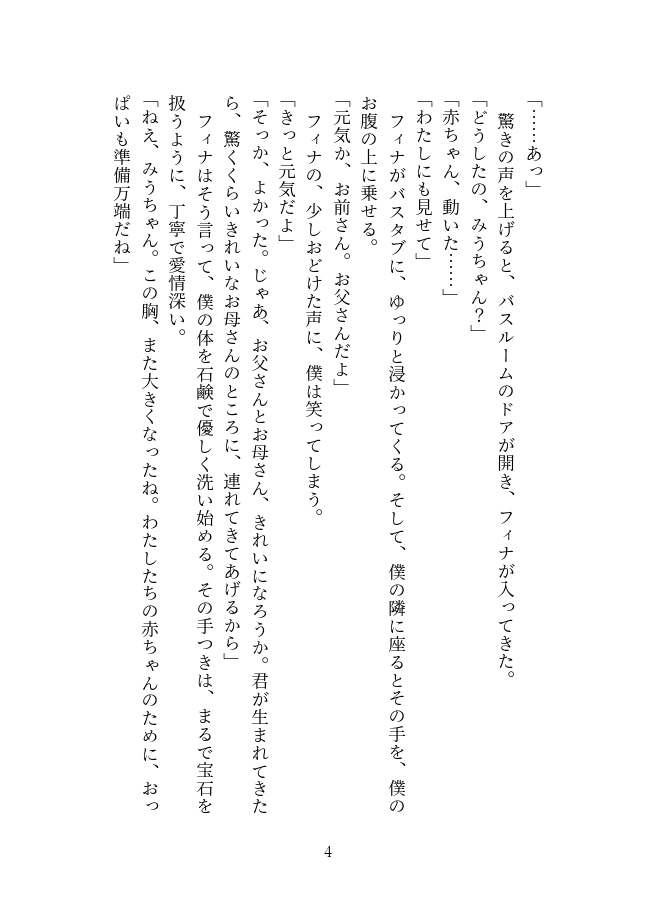 「……あっ」
　驚きの声を上げると、バスルームのドアが開き、フィナが入ってきた。
「どうしたの、みうちゃん？」
「赤ちゃん、動いた……」
「わたしにも見せて」
　フィナがバスタブに、ゆっりと浸かってくる。そして、僕の隣に座るとその手を、僕の
お腹の上に乗せる。
「元気か、お前さん。お父さんだよ」
　フィナの、少しおどけた声に、僕は笑ってしまう。
「きっと元気だよ」
「そっか、よかった。じゃあ、お父さんとお母さん、きれいになろうか。君が生まれてきた
ら、驚くくらいきれいなお母さんのところに、連れてきてあげるから」
　フィナはそう言って、僕の体を石鹸で優しく洗い始める。その手つきは、まるで宝石を
扱うように、丁寧で愛情深い。
「ねえ、みうちゃん。この胸、また大きくなったね。わたしたちの赤ちゃんのために、おっ
ぱいも準備万端だね」
4